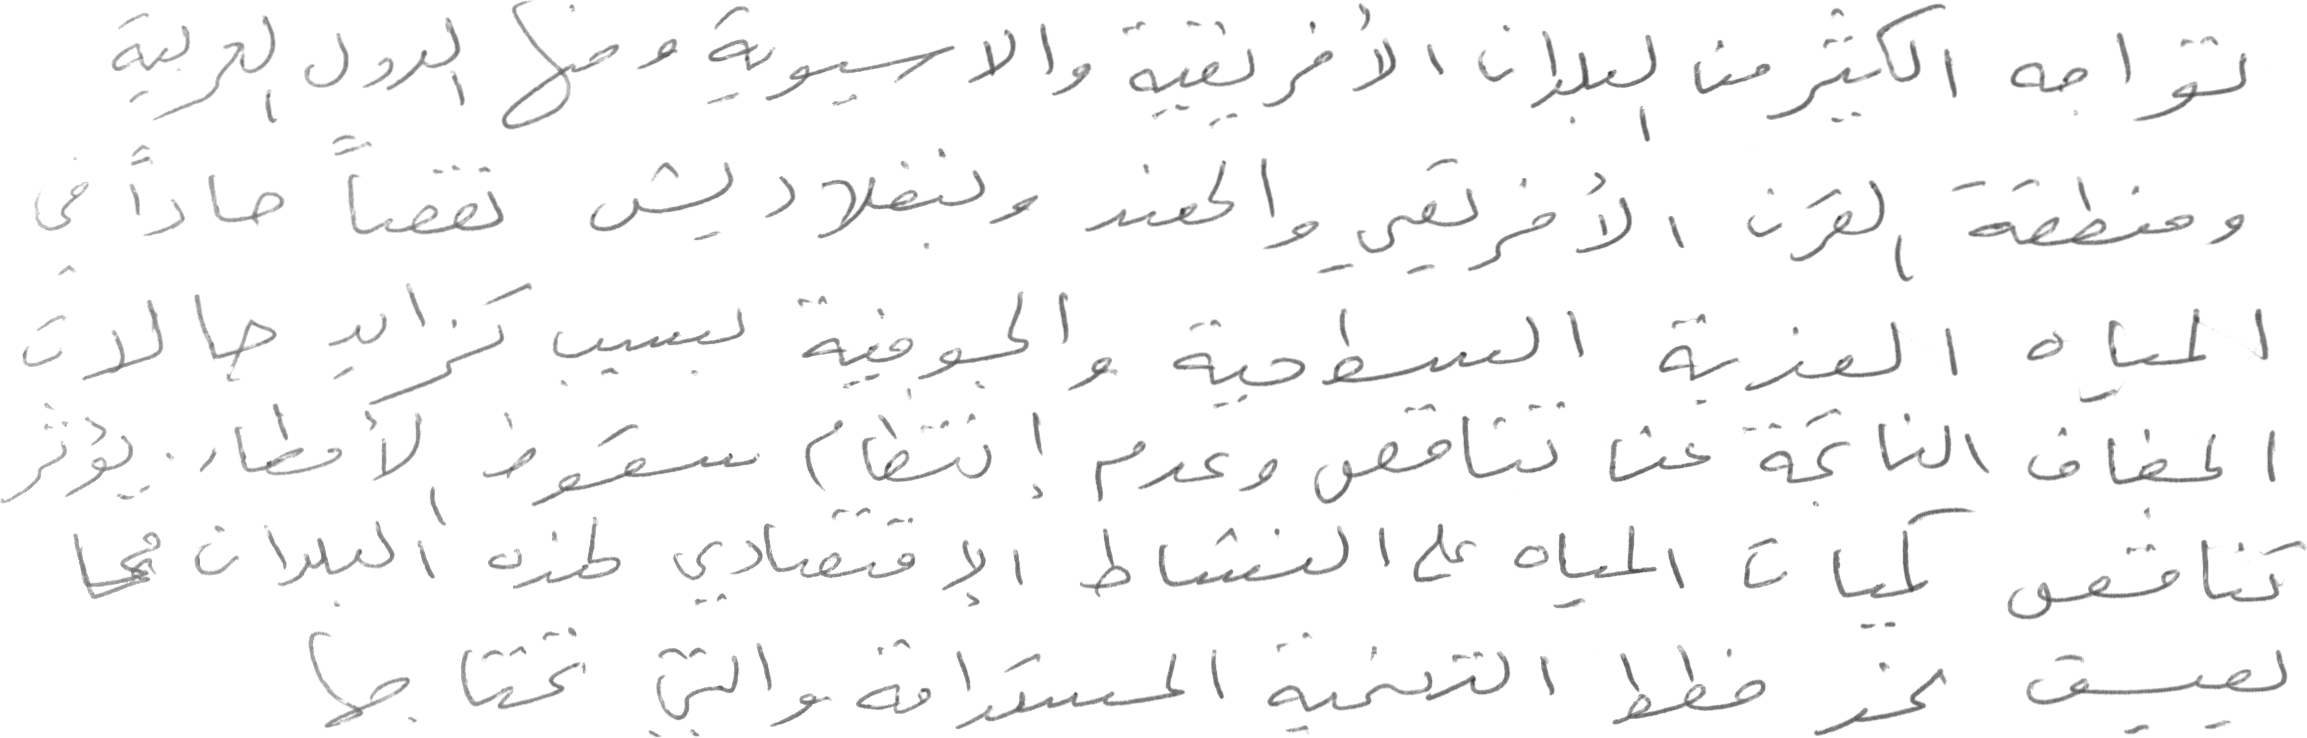 تواجه الكثير من البلدان الأفريقية والاسيوية ومنها الدول العربية
ومنطقة القرن الأفريقي والهند وبنغلاديش نقصاً حاداً في
المياه العذبة السطحية والجوفية بسبب تزايد حالات
الجفاف الناتجة عن تناقص وعدم إنتظام سقوط الأمطار. يؤثر
تناقص كميات المياه على النشاط الإقتصادي لهذه البلدان مما
يعيق خطط التنمية المستدامة والتي تحتاجها